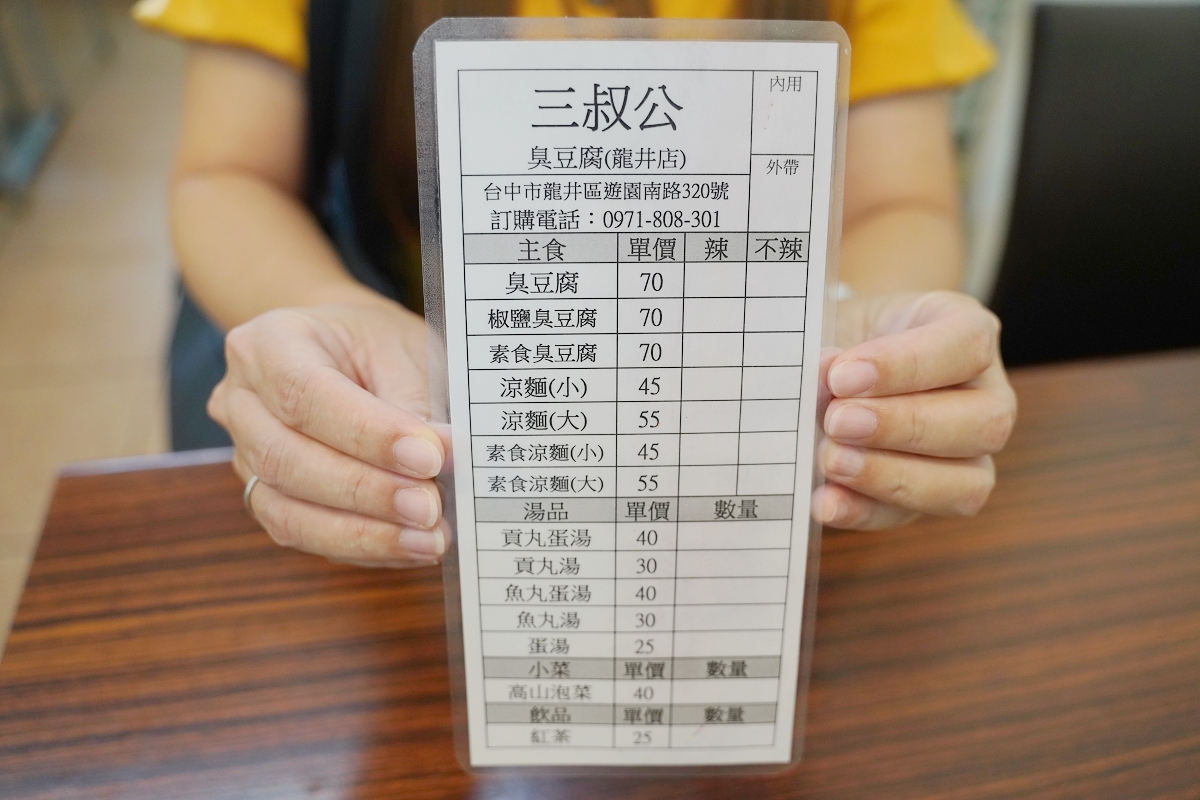 三叔公
臭豆腐(龍井店)
內用
外帶
台中市龍井區遊園南路320號
訂購電話：0971-808-301
主食 單價 辣 不辣
臭豆腐 70
椒鹽臭豆腐 70
素食臭豆腐 70
涼麵(小) 45
涼麵(大) 55
素食涼麵(小) 45
素食涼麵(大) 55
湯品 單價 數量
貢丸蛋湯 40
貢丸湯 30
魚丸蛋湯 40
魚丸湯 30
蛋湯 25
小菜 單價 數量
高山泡菜 40
飲品 單價 數量
紅茶 25